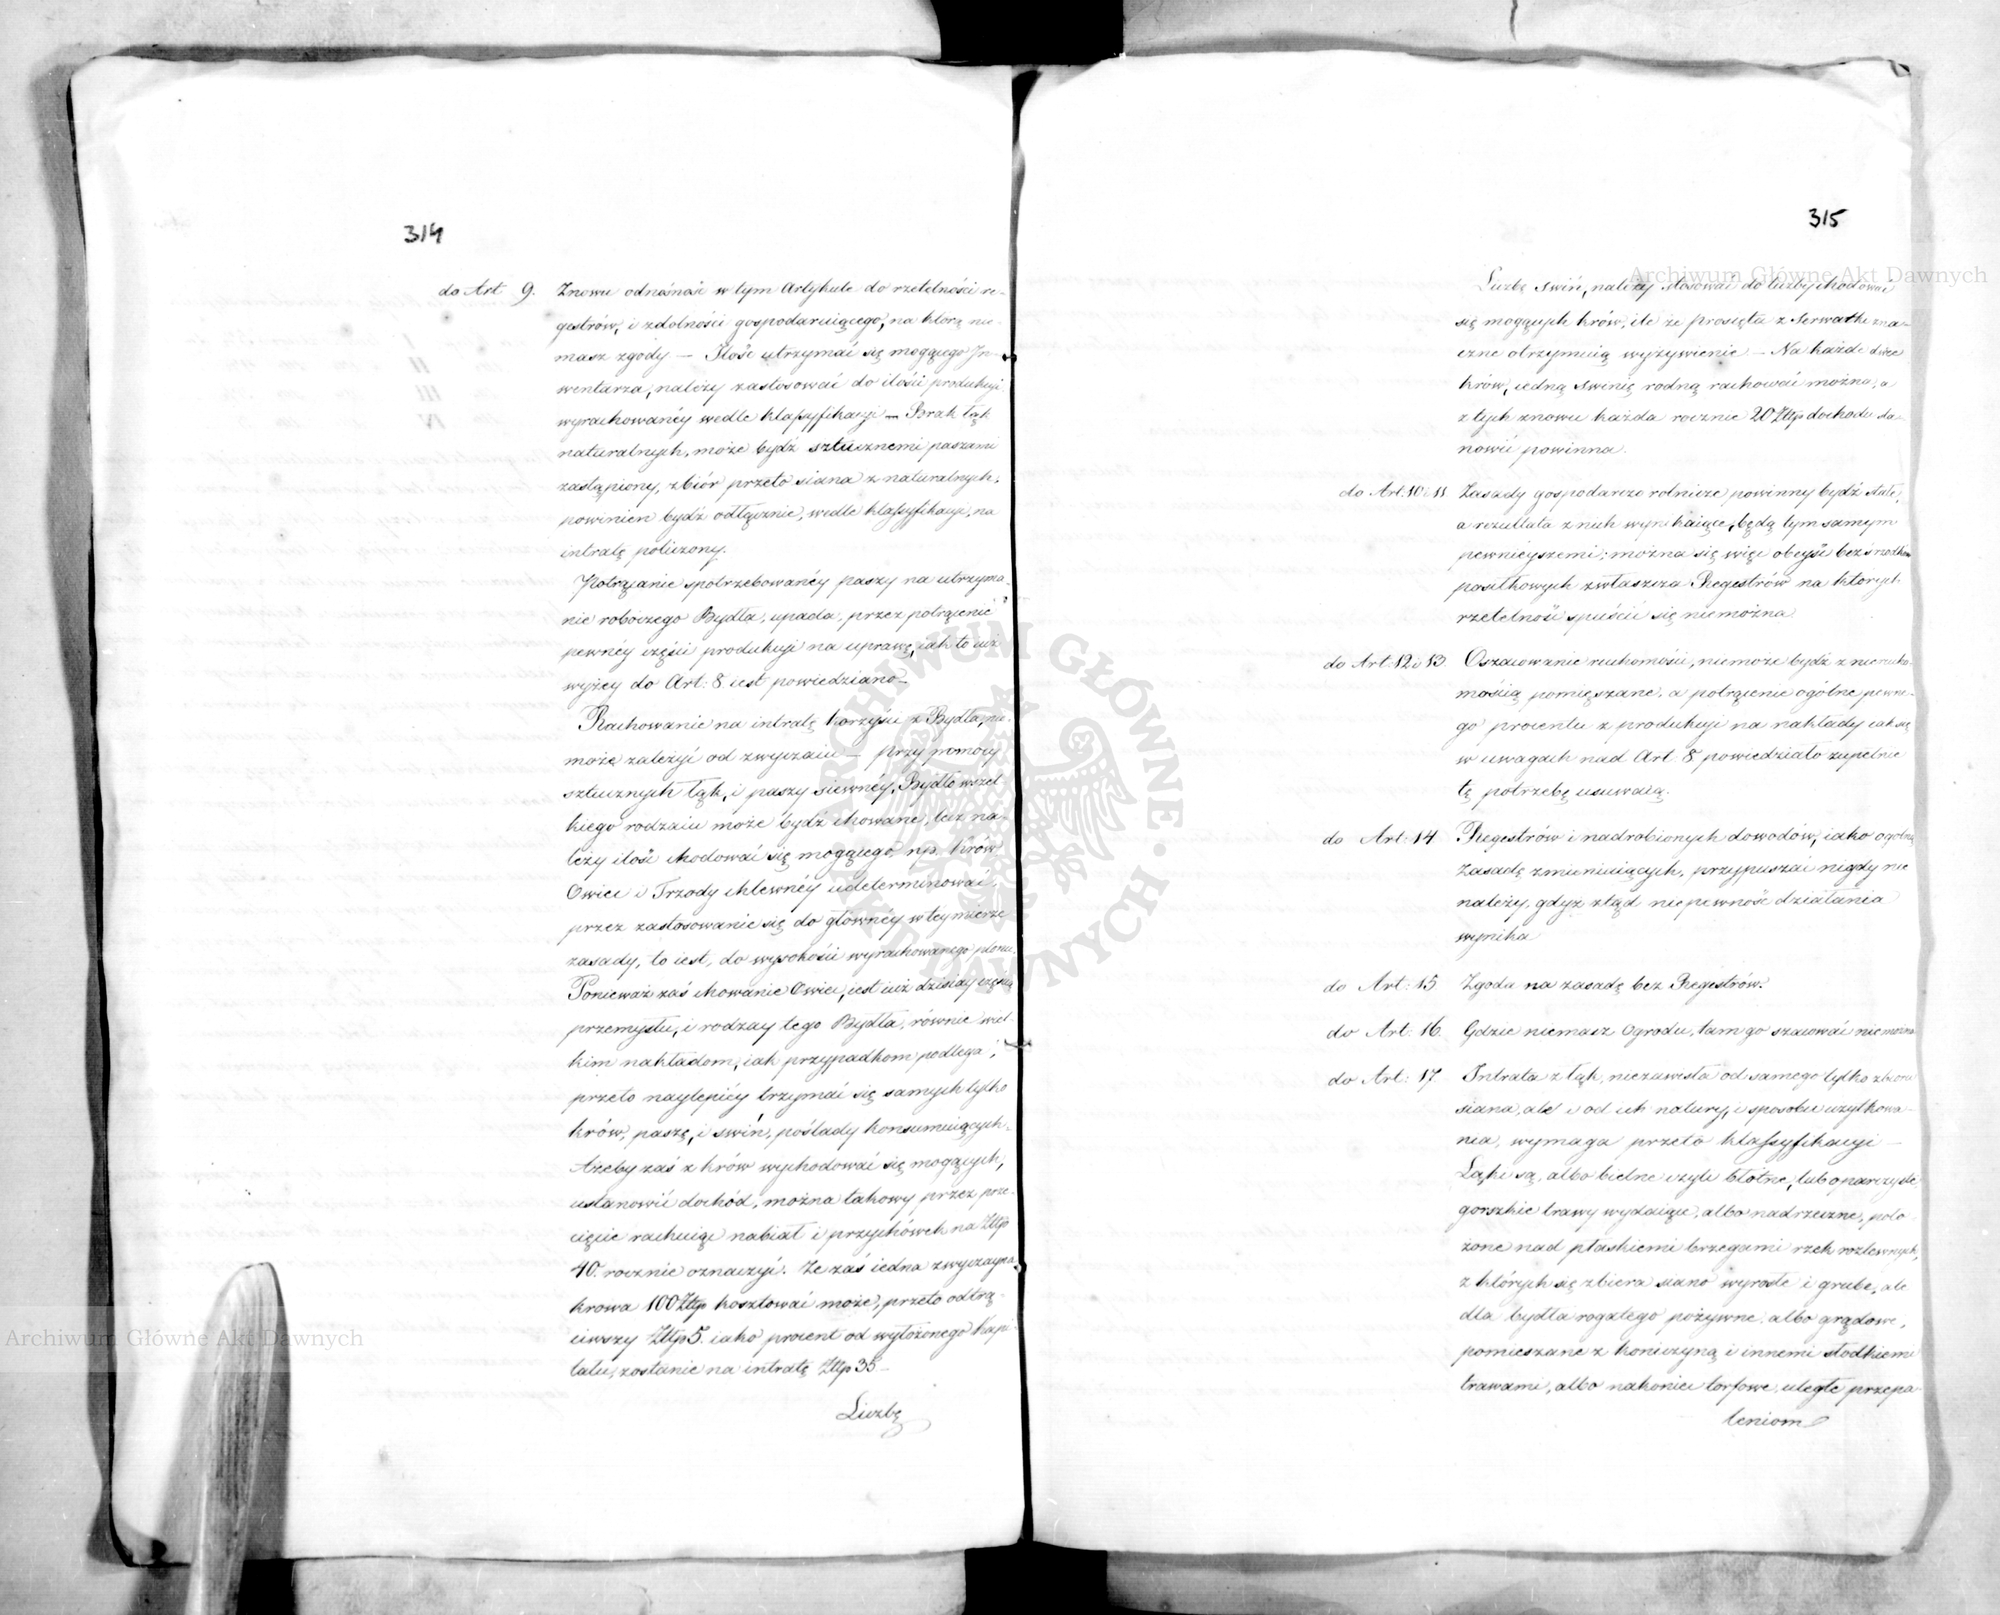 314
do Art 9. Znowu odnośność w tym Artykule do rzetelności re-
gestrów, i zdolności gospodaruiącego, na którą nie-
masz zgody — Ilość utrzymać się mogącego In-
wentarza, należy zastosować do ilości produkcyi
wyrachowanéy wedle klassyfikacyi — Brak łąk
naturalnych, może bydź sztucznemi paszami
zastąpiony, zbiór przeto siana z naturalnych,
powinien bydź odłącznie, wedle klassyfikacyi, na
intratę policzony.
Potrącanie spotrzebowanéy paszy na utrzyma-
nie roboczego Bydła, upada, przez potrącenie
pewnéy części produkcyi na uprawę, iak to iuż
wyżey do Art: 8 iest powiedziano —
Rachowanie na intratę korzyści z Bydła, nie
może zależyć od zwyczaiu — przy pomocy
sztucznych łąk, i paszy siewnéy, Bydło wszel-
kiego rodzaiu może bydź chowane, lecz na-
leży ilość chodować się mogącego, np. Krów
Owiec i Trzody chlewnéy udeterminować,
przez zastosowanie się do głównéy w tey mierze
zasady, to iest, do wysokości wyrachowanego plonu.
Ponieważ zaś chowanie Owiec, iest iuż dzisiay częścią
przemysłu, i rodzay tego Bydła, równie wiel-
kim nakładom, iak przypadkom podlega,
przeto naylepiéy trzymać się samych tylko
krów, paszę, i swiń, poślady konsumuiących.
Ażeby zaś z krów wychodować się mogących,
ustanowić dochód, można takowy przez prze-
cięcie rachuiąc nabiał i przychówek na Złłp
40. rocznie oznaczyć. Że zaś iedna zwyczayna
krowa 100 Złłp kosztować może, przeto odtrą-
ciwszy Złłp 5. iako procent od wyłożonego kapi-
tału, zostanie na intratę Złłp 35 —
Liczbę
315
Liczbę swiń, należy stosować do liczby chodować
się mogących krów, ile że prosięta z Serwatki zna-
czne otrzymuią wyżywienie — Na każde dwie
krów, iedną swinię rodną rachować można, a
z tych znowu każda rocznie 20 Złłp dochodu sta-
nowić powinna.
do Art: 10 i 11 Zasady gospodarczo rolnicze powinny bydź stałe,
a rezultata z nich wynikaiące, będą tym samym
pewnieyszemi; można się więc obeyść bez środków
posiłkowych zwłaszcza Regestrów na których
rzetelność spuścić się niemożna.
do Art: 12 i 13 Oszacowanie ruchomości, niemoże bydź z nierucho-
mością pomięszane, a potrącenie ogólne pewne-
go procentu z produkcyi na nakłady iak się
w uwagach nad Art: 8 powiedziało zupełnie
tę potrzebę usuwaią.
do Art: 14 Regestrów i nadrobionych dowodów, iako ogólną
Zasadę zmieniaiących, przypuszczać nigdy nie
należy, gdyż ztąd niepewność działania
wynika
do Art: 15 Zgoda na zasadę bez Regestrów.
do Art: 16. Gdzie niemasz Ogrodu, tam go szacować niemożna
do Art: 17 Intrata z łąk, niezawisła od samego tylko zbioru
siana, ale i od ich natury, i sposobu użytkowa-
nia, wymaga przeto klassyfikacyi —
Łąki są, albo bielne czyli błotne, lub oparczyste
gorszkie trawy wydaiące, albo nadrzeczne, poło-
żone nad płaskiemi brzegami rzek rozlewnych,
z których się zbiera siano wyrosłe i grube, ale
dla bydła rogatego pożywne, albo grądowe,
pomieszane z koniczyną i innemi słodkiemi
trawami, albo nakoniec torfowe, uległe przepa-
leniom
Archiwum Główne Akt Dawnych
Archiwum Główne Akt Dawnych
ARCHIWUM GŁÓWNE AKT DAWNYCH